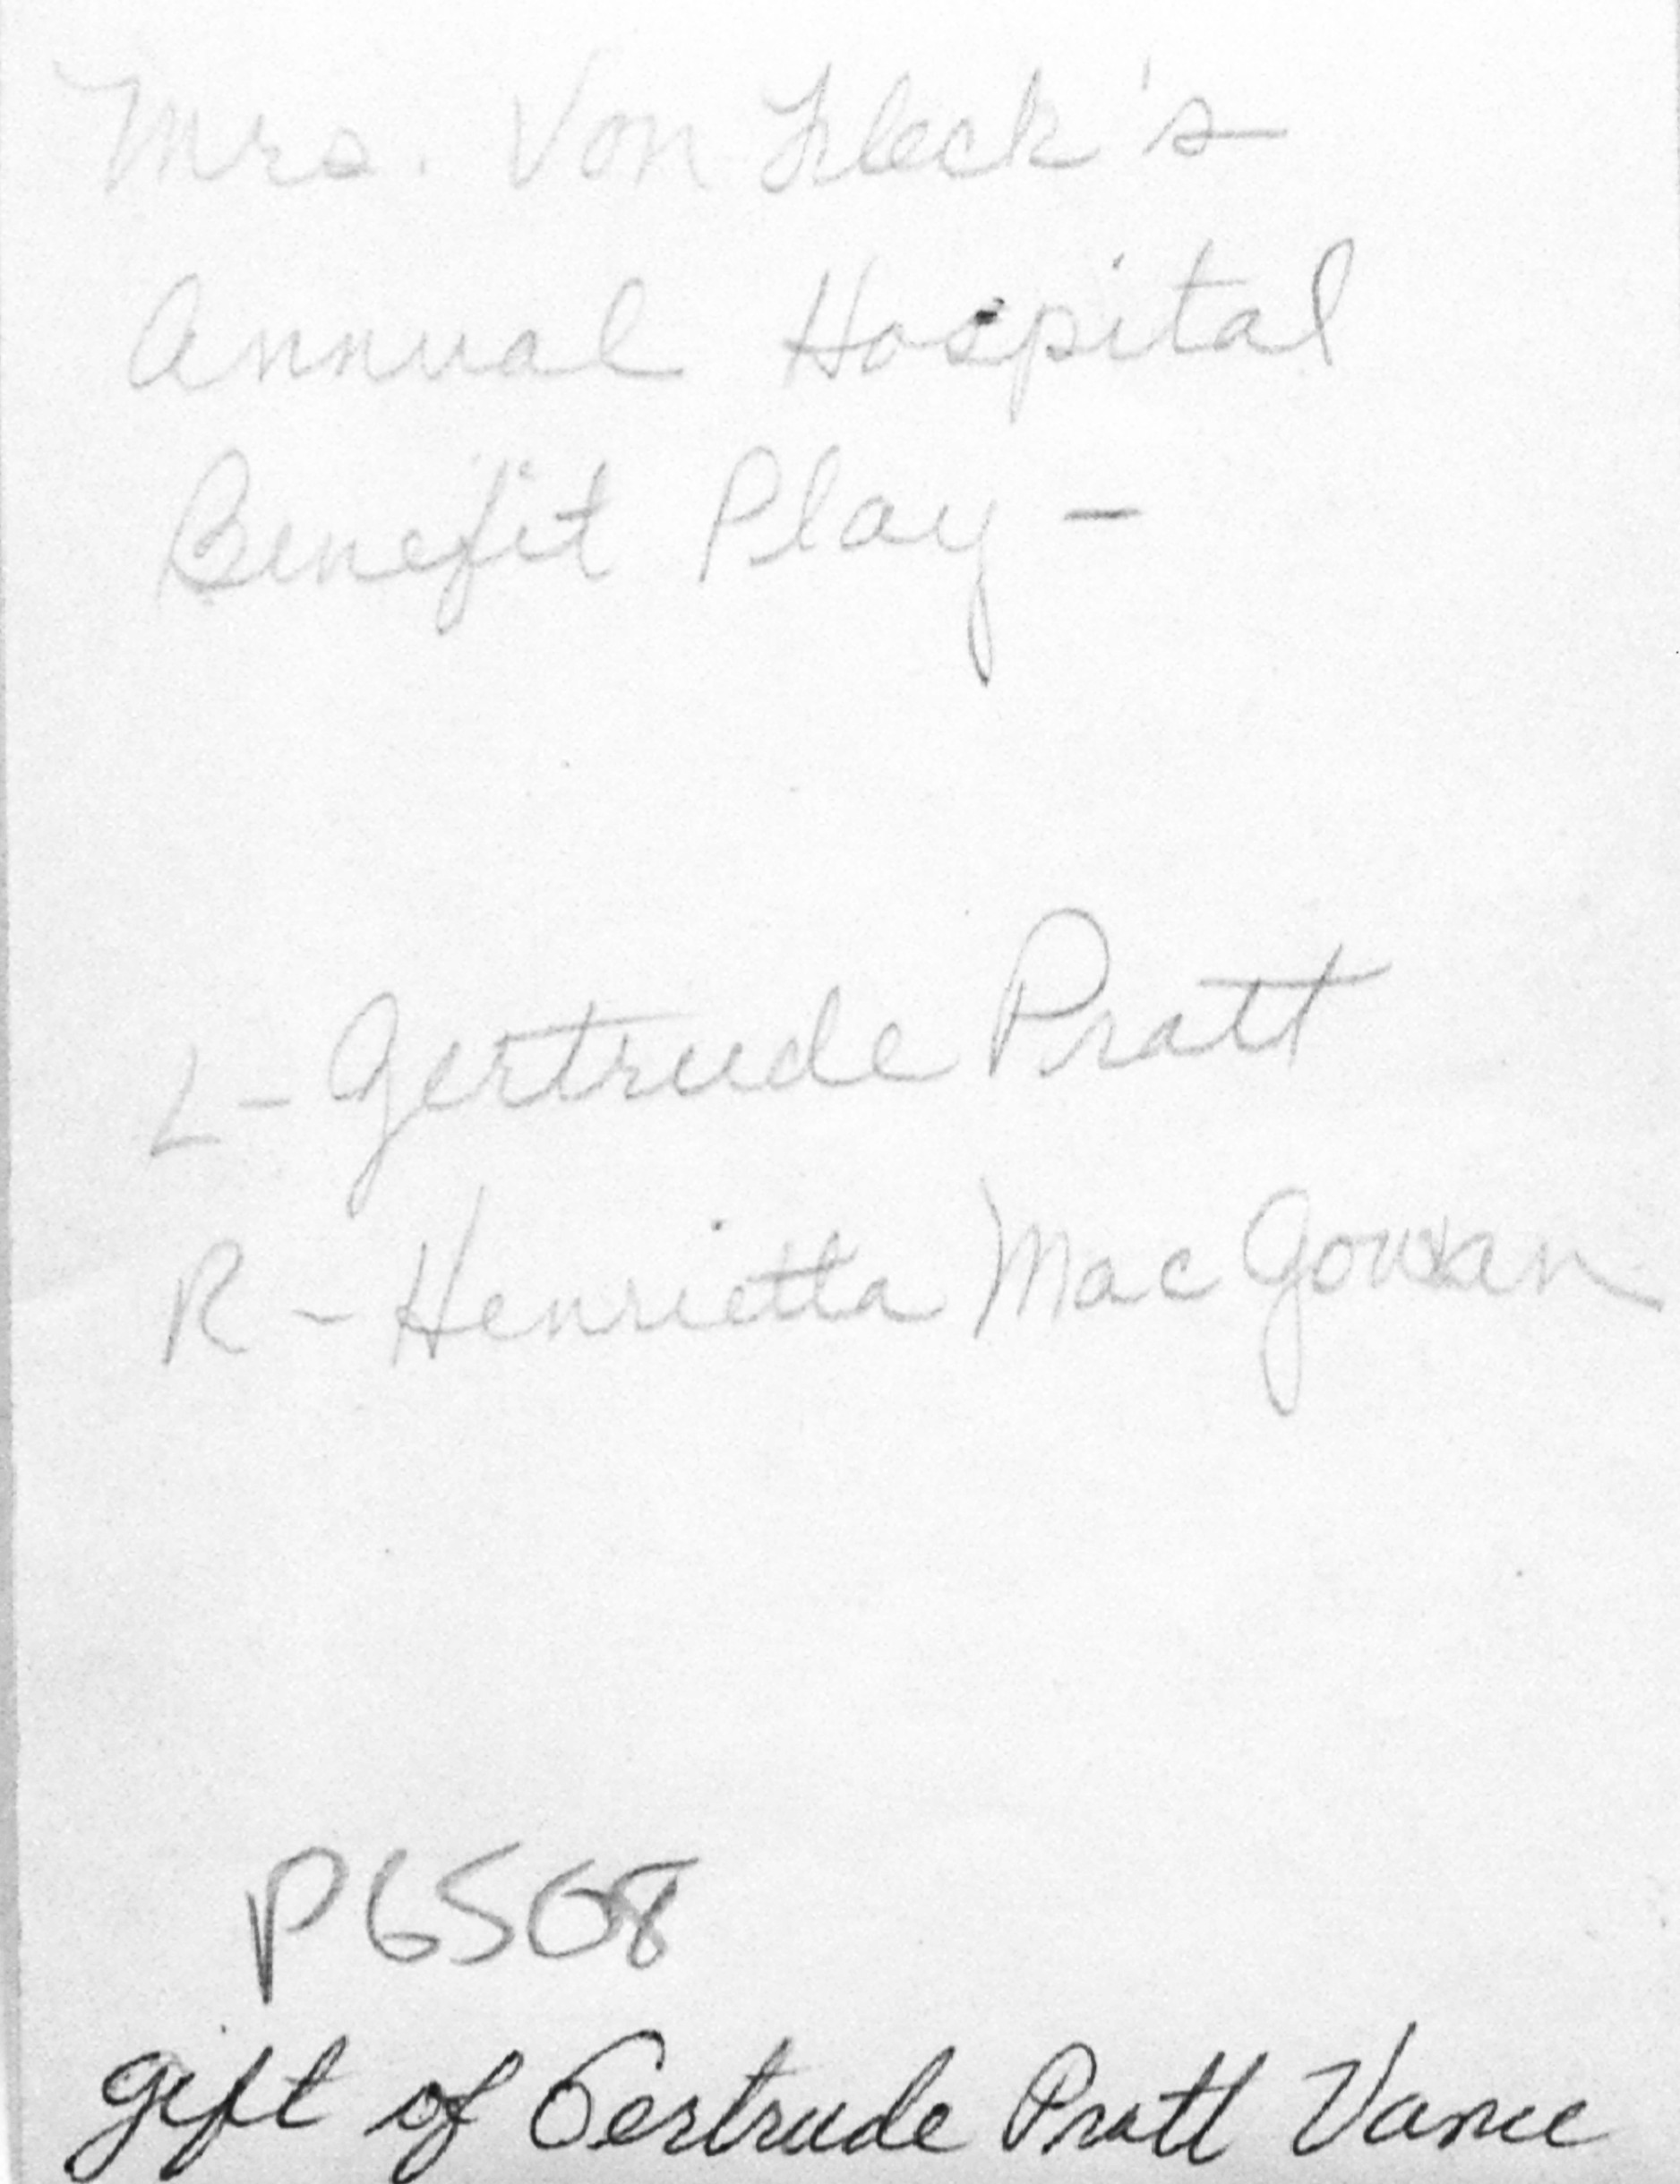 Mrs. Von Fleck's
Annual Hospital
Benefit Play -
L - Gertrude Pratt
R - Henrietta Mac Gowan
P6508
gift of Gertrude Pratt Vance